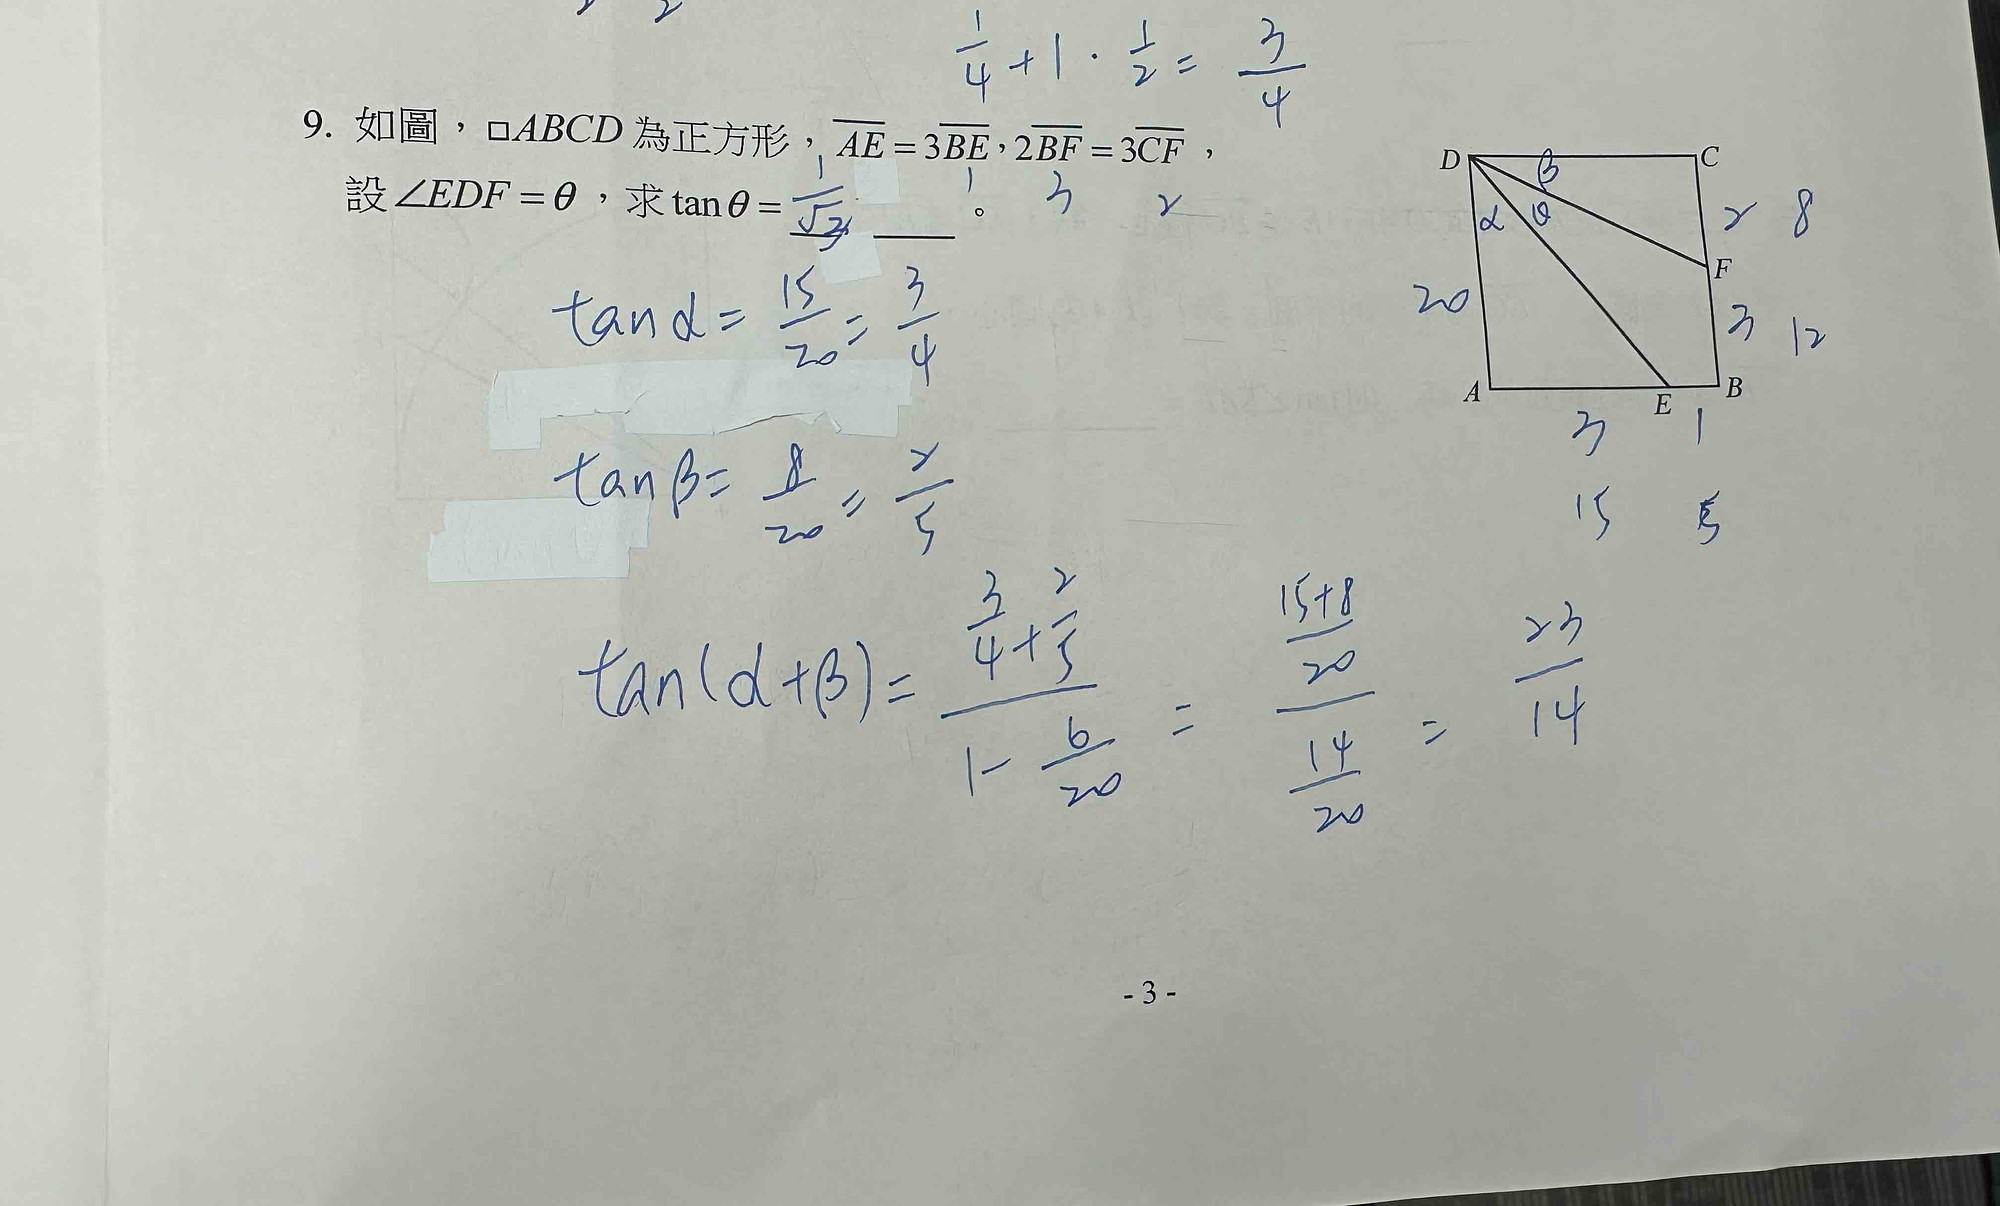 1/4 + 1 · 1/2 = 3/4
9. 如圖，□ABCD 為正方形，AE = 3BE，2BF = 3CF，
1 3 2
設∠EDF = θ，求 tan θ = 。
D β C
α θ 2 8
F
20 3 12
A E B
3 1
15 5
tan α = 15/20 = 3/4
tan β = 8/20 = 2/5
tan(α+β) = (3/4 + 2/5)/(1 - 6/20) = ((15+8)/20)/(14/20) = 23/14
- 3 -